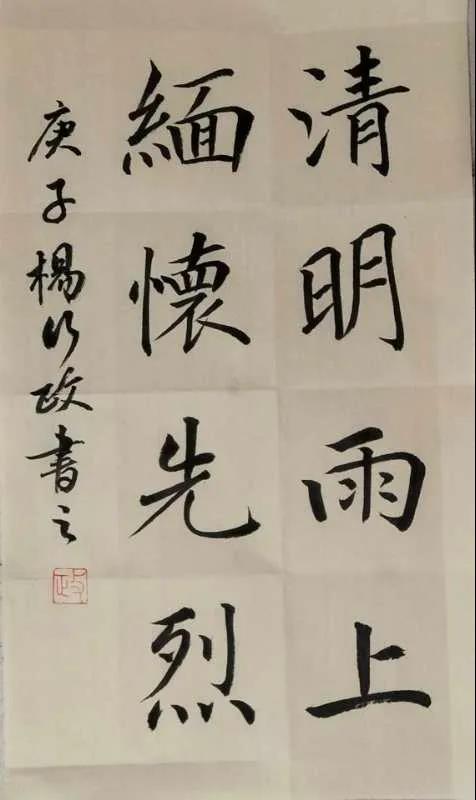 清明雨上
緬懷先烈
庚子楊行政書之
政